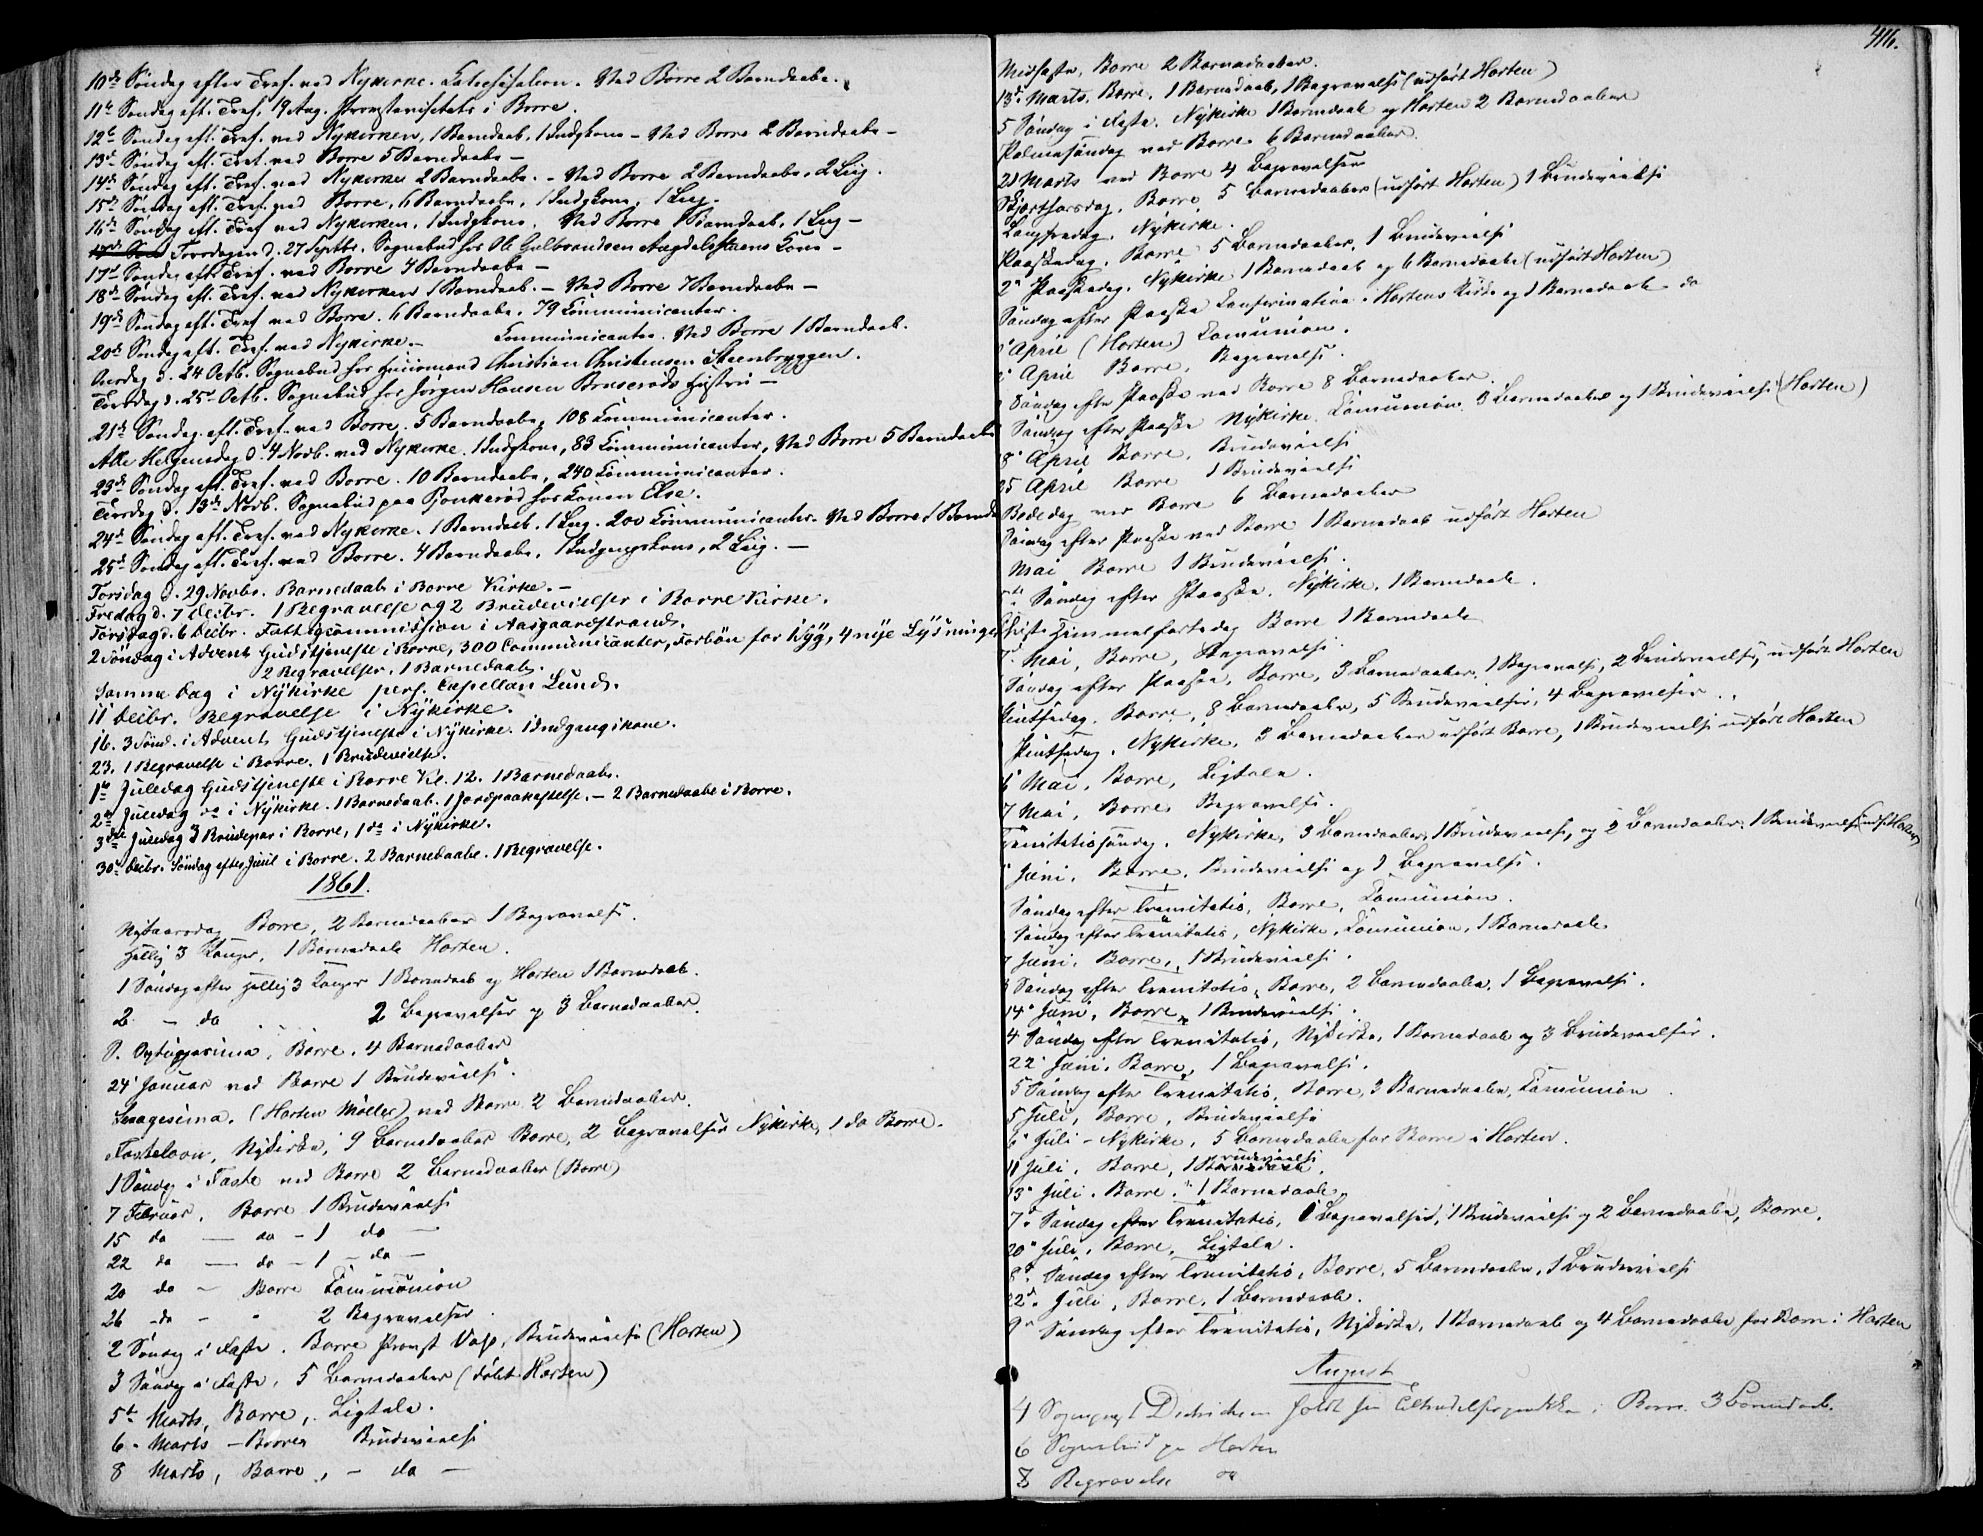 10de Søndag efter Tref. ved Nykirke. Catechisation. Ved Borre 2 Barndaabe.
11te Søndag eft. Tref. 19 Aug. Provstevisitats i Borre.
12te Søndag eft. Tref. ved Nykirken, 1 Barndaab, 1 Indgkone – Ved Borre 2 Barndaabe –
13de Søndag eft. Tref. ved Borre 5 Barndaabe –
14de Søndag eft. Tref. ved Nykirken 2 Barndaabe. – Ved Borre 2 Barndaabe, 2 Liig.
15de Søndag eft. Tref. ved Borre, 6 Barndaabe, 1 Indgkone, 1 Liig.
16de Søndag eft. Tref. ved Nykirken, 1 Indgkone. Ved Borre 1 Barndaab, 1 Liig –
Torsdagen d. 27 Septbr. Sognebud hos Ole Gulbrandsen Kone –
17de Søndag eft. Tref. ved Borre 4 Barndaabe –
18de Søndag eft. Tref. ved Nykirken 1 Barndaab. – Ved Borre 7 Barndaabe –
19de Søndag eft. Tref. ved Borre. 6 Barndaabe. 79 Communicanter.
20de Søndag eft. Tref. ved Nykirke. – Communicanter. Ved Borre 1 Barndaab.
Onsdag d. 24 Octb. Sognebud hos Huusmand Christian Christensen Steenbryggen.
Torsdag d. 25de Octb. Sognebud hos Jørgen Hansen Bruserøds Hustru –
21de Søndag eft. Tref. ved Borre. 5 Barndaabe, 108 Communicanter.
Alle Helgensdag d. 4 Novb. ved Nykirke. 1 Indgkone, 83 Communicanter, Ved Borre 5 Barndaabe
23de Søndag eft. Tref. ved Borre. 10 Barndaabe, 240 Communicanter.
Tirsdag d. 13de Novb. Sognebud paa hos Konen Else.
24de Søndag eft. Tref. ved Nykirke. 1 Barndaab. 1 Liig. 200 Communicanter. Ved Borre 1 Barnda
25de Søndag eft. Tref. ved Borre. 4 Barndaabe. 1 Indgangskone, 2 Liig. –
Torsdag d. 29 Novbr. Barnedaab i Borre Kirke. –
Fredag d. 7 Decbr. 1 Begravelse og 2 Brudevielser i Borre Kirke.
Torsdag d. 6 Decbr. Fattigcommission i Aasgaardstrand.
2 Søndag i Advent Gudstjeneste i Borre, 300 Communicanter, Forbön for syg, 4 nye Lysninger
2 Begravelser, 1 Barnedaab.
Samme Dag i Nykirke pers. Capellan Lund.
11 Decbr. Begravelse i Nykirke.
16. 3 Sönd. i Advent, Gudstjeneste i Nykirke. 1 Indgangskone.
23. 1 Begravelse i Borre. 1 Brudevielse.
1te Juledag Gudstjeneste i Borre Kl. 12. 1 Barnedaab.
2den Juledag do i Nykirke. 1 Barnedaab. 1 Jordpaakastelse. – 2 Barnedaabe i Borre.
3die Juledag 3 Brudepar i Borre, 1 do i Nykirke.
30te Decbr. Söndag efter Juul i Borre. 2 Barnedaabe. 1 Begravelse.
1861.
Nytaarsdag Borre, 2 Barnedaaber 1 Begravelse.
Hellig 3 Konger, 1 Barnedaab Horten.
1 Søndag efter Hellig 3 Konger 1 Barndaab og Horten 1 Barndaab.
2 – do 2 Begravelser og 3 Barnedaaber.
S. Septuagesima, Borre, 4 Barnedaaber
24' Januar ved Borre 1 Brudevielse.
Sexagesima. (Horten Møller) ved Borre 2 Barnedaaber.
Fastelavn, Nykirke, 9 Barnedaaber Borre, 2 Begravelser Nykirke, 1 do Borre.
1 Søndag i Faste ved Borre 2 Barnedaaber (Borre)
7 Februar, Borre 1 Brudevielse
15 do – do – 1 do –
22 do – do – 1 – do –
20 do – Borre Communion
26 – do – " 2 Begravelser.
2 Søndag i Faste. Borre Provst Brudevielse (Horten)
3 Søndag i Faste, 5 Barnedaaber (døbt Horten)
5te Marts, Borre, Ligtale.
6. Marts – Borre, Brudevielse
8 Marts, Borre, – do –
416.
Midfaste, Borre 2 Barnedaaber.
13de Marts, Borre, 1 Barnedaab, 1 Begravelse (udført Horten)
5 Søndag i Faste. Nykirke 1 Barndaab og Horten 2 Barnedaaber
Palmesøndag ved Borre 6 Barnedaaber.
21 Marts ved Borre 4 Begravelser
Skjærthorsdag, Borre 5 Barnedaaber (udført Horten) 1 Brudevielse
Langfredag, Nykirke.
Paaskedag, Borre 5 Barnedaaber, 1 Brudevielse
2' Paaskedag, Nykirke 1 Barnedaab og 6 Barnedaabe (udført Horten)
Søndag efter Paaske Confirmation i Hortens Kirke og 1 Barnedaab do
April (Horten) Comunion.
April Borre, Begravelse.
Søndag efter Paaske ved Borre 8 Barnedaaber.
Søndag efter Paaske Nykirke, Comunion, 3 Barnedaaber og 1 Brudevielse (Horten)
8' April Borre, Brudevielse
25 April Borre 1 Brudevielse
Bededag ved Borre 6 Barnedaaber
Søndag efter Paaske ved Borre 1 Barnedaab udført Horten
Mai Borre 1 Brudevielse.
Søndag efter Paaske, Nykirke, 1 Barnedaab.
Christi Himmelfartsdag Borre 1 Barnedaab
Mai, Borre, Begravelse.
Søndag efter Paaske, Borre, 3 Barnedaaber, 1 Begravelse, 2 Brudevielse, udført Horten
Pintsedag, Borre, 8 Barnedaaber, 5 Brudevielser, 4 Begravelser.
Pintsedag, Nykirke, 3 Barnedaaber udført Borre, 1 Brudevielse udført Horten
6' Mai, Borre, Ligtale.
7 Mai, Borre, Begravelse.
Trinitatissøndag, Nykirke, 3 Barnedaaber, 1 Brudevielse, og 2 Barndaaber, 1 Brudevielse (udført Horten)
Juni, Borre, Brudevielse og 1 Begravelse.
Søndag efter Trinitatis, Borre, Comunion.
Søndag efter Trinitatis, Nykirke, Comunion, 1 Barnedaab
7 Juni, Borre, 1 Brudevielse.
Søndag efter Trinitatis, Borre, 2 Barnedaabe, 1 Begravelse.
14' Juni, Borre, 1 Brudevielse.
4 Søndag efter Trinitatis, Nykirke, 1 Barnedaab og 3 Brudevielser.
22' Juni, Borre, 1 Begravelse.
5 Søndag efter Trinitatis, Borre, 3 Barnedaabe, Comunion
5 Juli, Borre, Brudevielse
6' Juli – Nykirke, 5 Barnedaabe for Borre i Horten.
11 Juli, Borre, 1 Brudevielse.
13' Juli, Borre, 1 Barnedaab.
7' Søndag efter Trinitatis, Begravelser, 1 Brudevielse og 2 Barnedaabe, Borre.
20' Juli, Borre, Ligtale.
8' Søndag efter Trinitatis, Borre, 5 Barnedaabe, 1 Brudevielse
22' Juli, Borre, 1 Barnedaab.
9' Søndag efter Trinitatis, Nykirke, 1 Barnedaab og 4 Barnedaabe for Borre i Horten
August
4 Sognepræst Diderichsen holdt sin Tiltrædelsesprædiken i Borre. 3 Barnedaab.
6 Sognebud paa Horten
8 Begravelse do